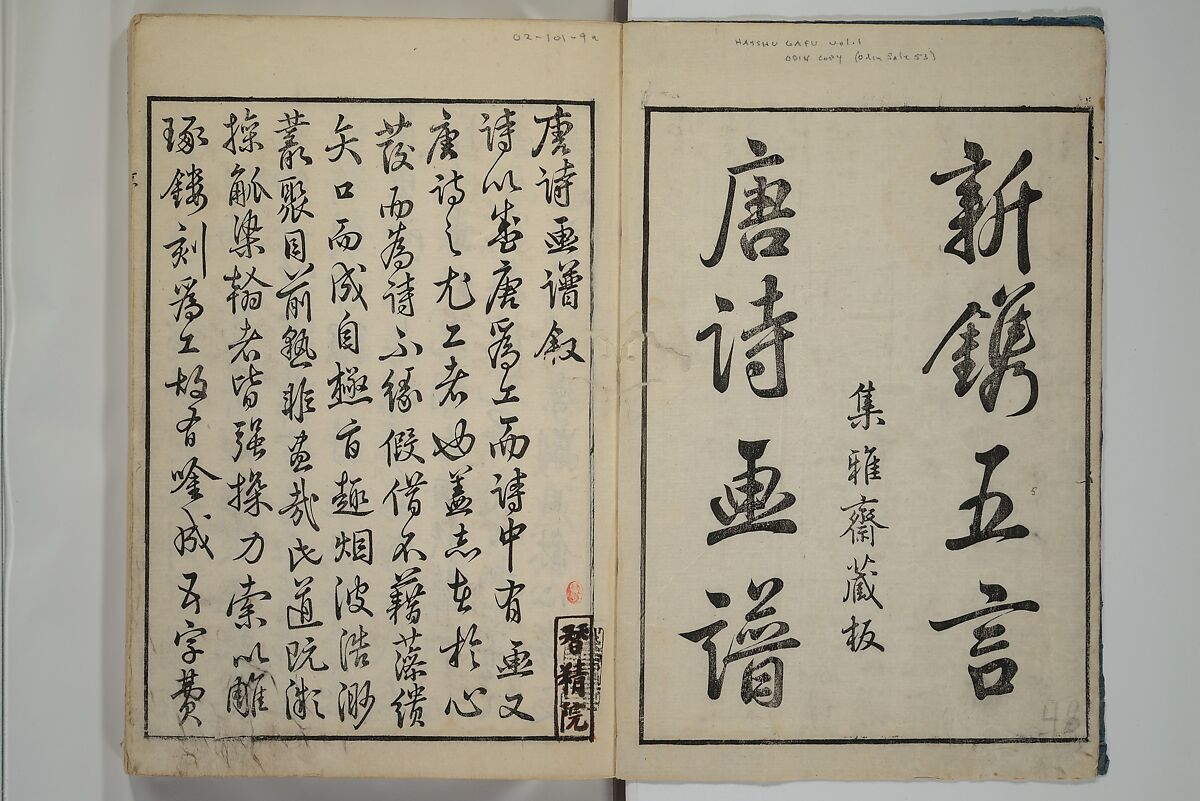 HAISHU GAFU vol.1
ODIN COPY (Odin Sale 53)
新鐫五言
集雅齋藏板
唐詩画譜
48
02-101-9a
唐詩画譜敘
詩以盛唐爲工而詩中有画又
唐詩之尤工者也蓋志在於心
發而為詩不緣假借不藉藻繢
矢口而成自極旨趣烟波浩渺
叢聚目前孰非畫哉此道既漓
操觚染翰者皆强操刀索以雕
琢鏤刻爲工故有唫成五字費
精院